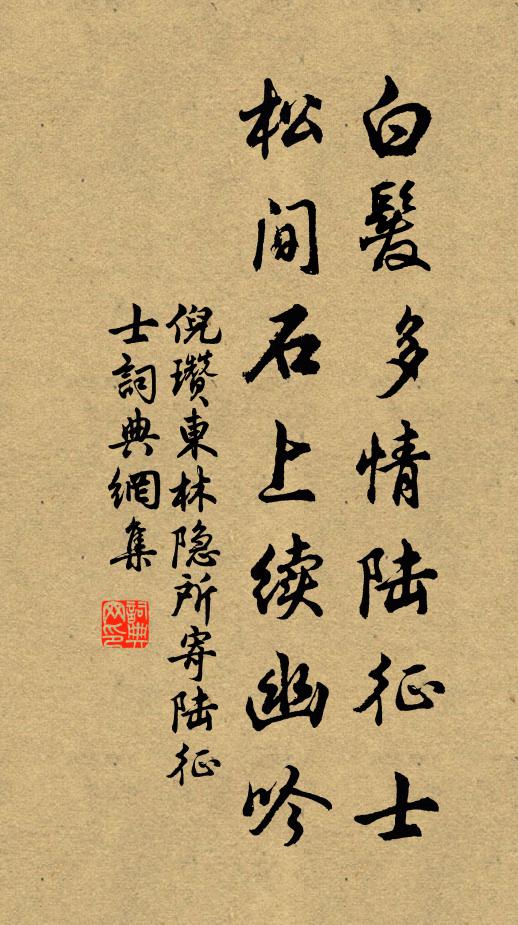 白髮多情陆征士
松間石上续幽吟
倪瓚東林隐所寄陆征
士詞典網集
詞典网印